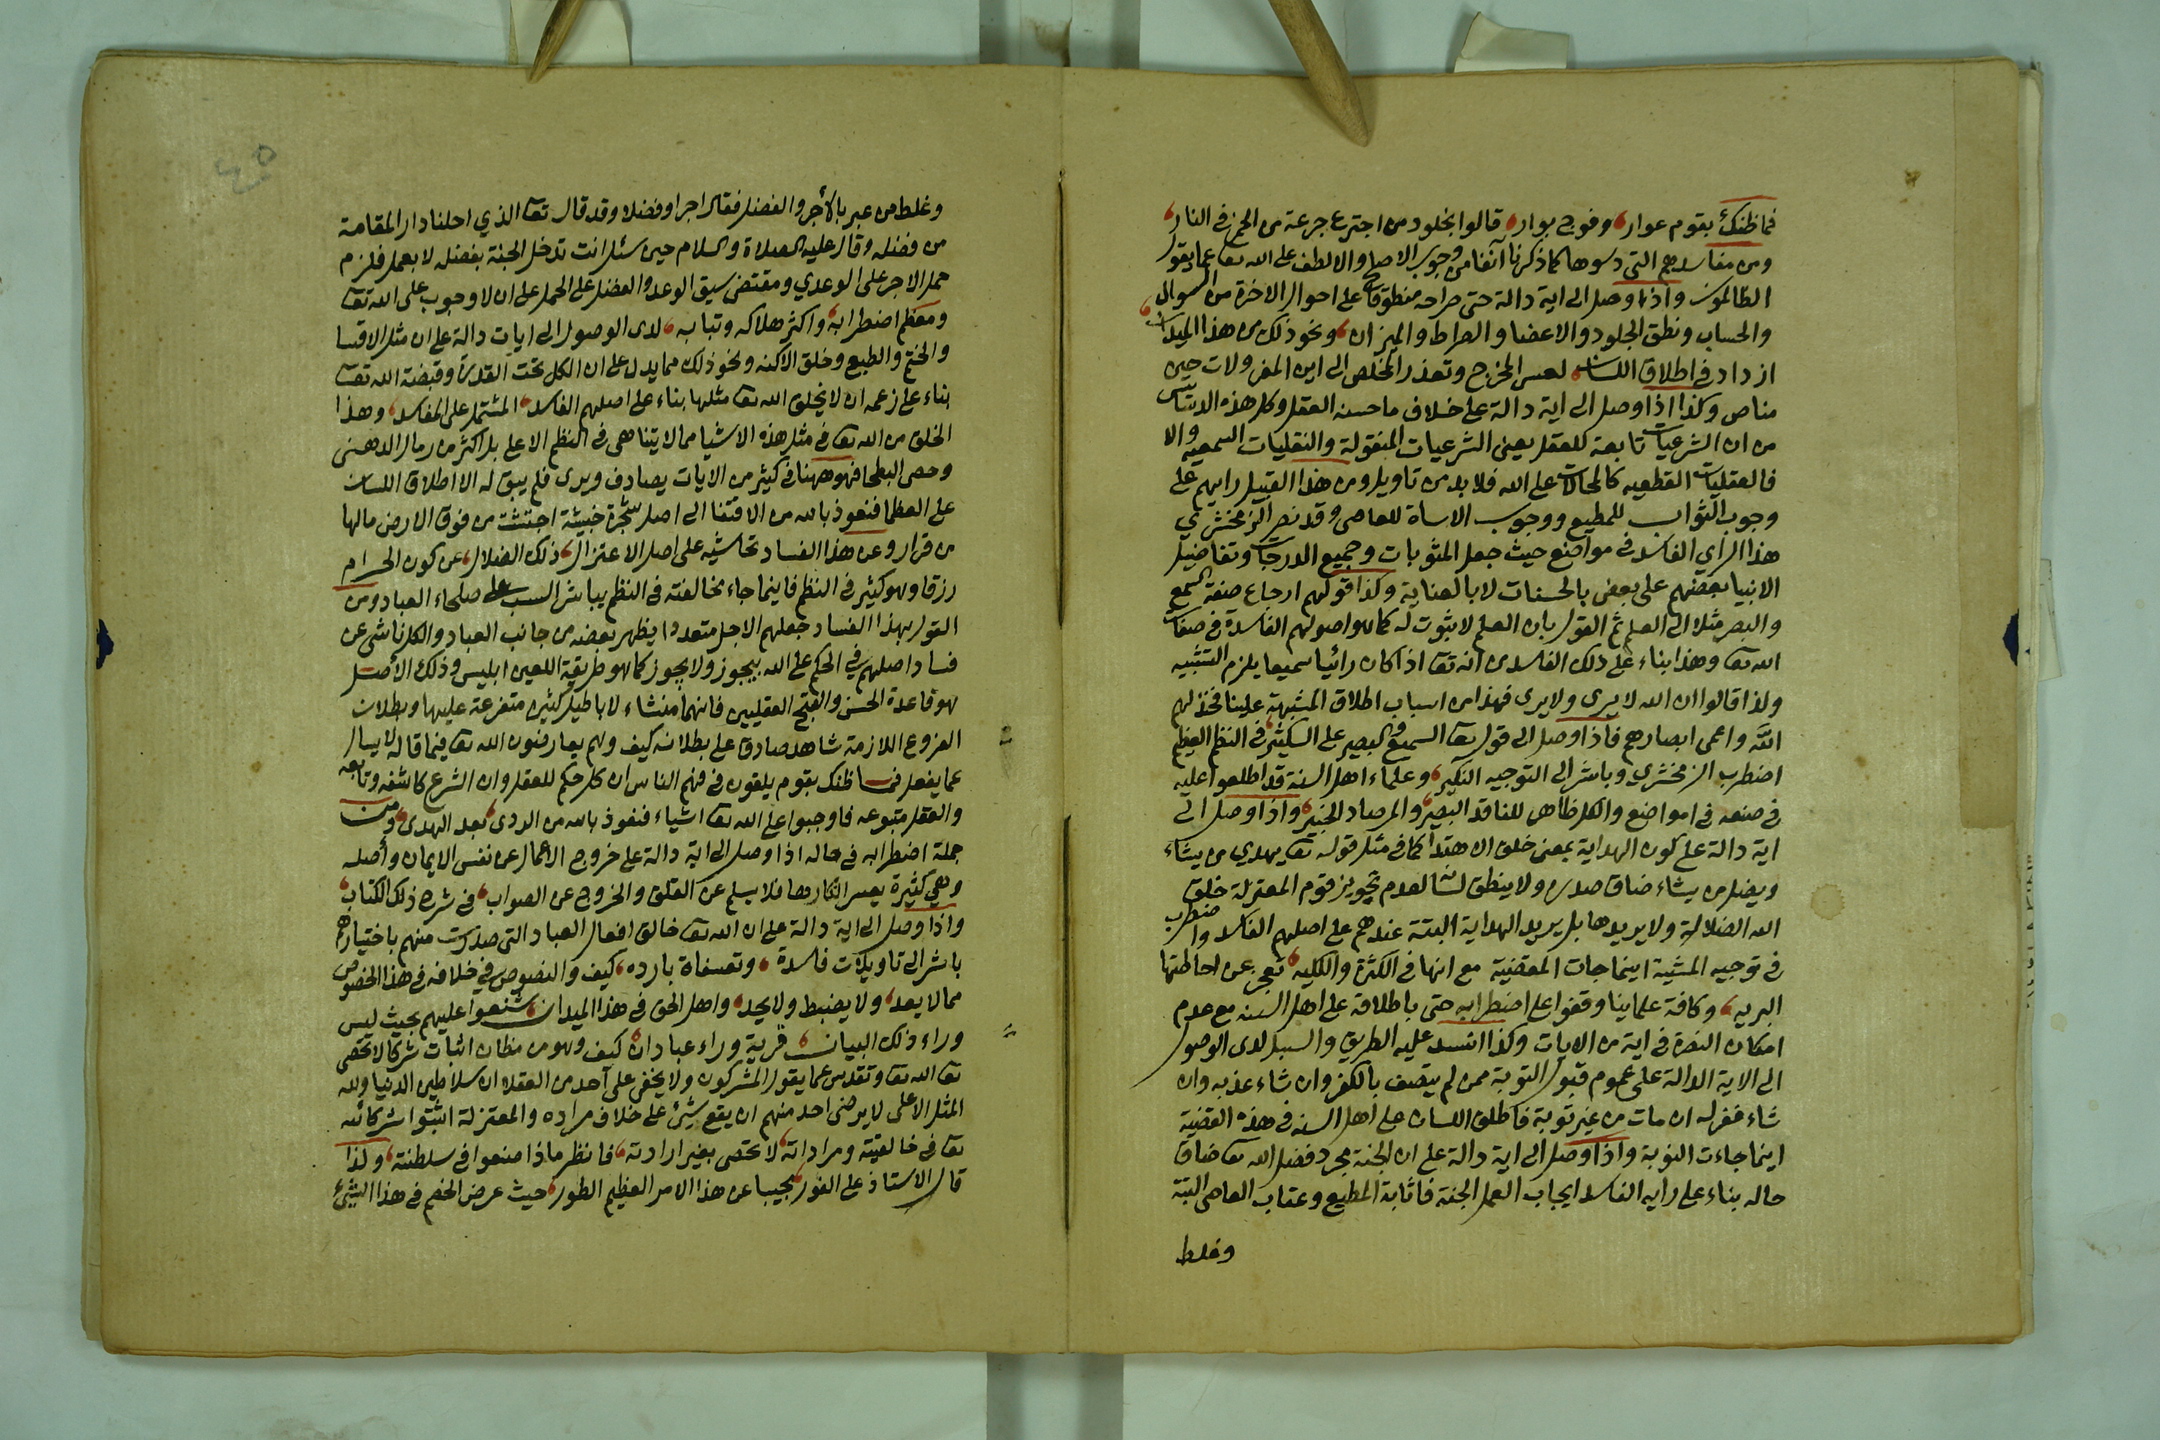 فما ظنك بقوم عوار وفوج بوار قالوا بخلود من اجترع جرعة من الخمر في النار
ومن مفاسدهم التي دسوها كما ذكرنا آنفا من وجوب الاصلح والالطف على الله تعا عما يقول
الظالمون واذا وصل الى اية دالة حتى صراحه منطوقا على احوال الاخرة من السوال
والحساب ونطق الجلود والاعضا والصراط والميزان ونحو ذلك من هذا الميدان
ازداد في اطلاق اللسان لعسر المخرج وتعذر المخلص الى اين المفر ولات حين
مناص وكذا اذا وصل الى اية دالة على خلاف ما حسنه العقل وكل هذه الاساس
من ان الشرعيات تابعة للعقل يعني الشرعيات المنقولة والنقليات السمعيه والا
فالعقليات القطعيه كالمحالات على الله فلا بد من تاويل ومن هذا القبيل رايهم على
وجوب الثواب للمطيع ووجوب الاساة للعاصي وقد نصر الزمخشري
هذا الراي الفاسد في مواضع حيث جعل المثوبات وجميع الدرجات وتفاضيل
الانبيا بعضهم على بعض بالحسنات لا بالعناية وكذا قولهم ارجاع صفة السمع
والبصر مثلا الى العلم ثم القول بان العلم لا ثبوت له كما هو اصولهم الفاسدة في صفات
الله تعا وهذا بناء على ذلك الفاسد من انه تعا اذا كان رائيا سميعا يلزم التشبيه
ولذا قالوا ان الله لا يرى ولا يرى فهذا من اسباب اطلاق المشبهة علينا فخذلهم
الله واعمى ابصارهم فاذا وصل الى قول تعا السميع والبصير على السكيثر في النظم العظيم
اضطرب الزمخشري وباشر الى التوجيه النكير وعلماء اهل السنة قد اطلعوا عليه
في صنعه في مواضع والكل ظاهر للناقد البصير والمرصاد الخبير واذا وصل الى
اية دالة على كون الهداية بمعنى خلق الاهتدا كما في مثل قوله تعا يهدي من يشاء
ويضل من يشاء ضاق صدره ولا ينطق لسانه لعدم تجويز قوم المعتزلة خلق
الله الضلالة ولا يريدها بل يريد الهداية البتة عندهم على اصلهم الفاسد واضطرب
في توجيه المشية اينما جات المقضية مع انها في الكثرة والكليه تعجز عن احاطتها
البريه وكافة علماينا وقفوا على اضطرابه حتى باطلاقه على اهل السنه مع عدم
امكان النصرة في اية من الايات وكذا انسد عليه الطريق والسبيل لدى الوصول
الى الاية الدالة على عموم قبول التوبة ممن لم يتصف بالكفر وان شاء عذبه وان
شاء غفر له ان مات من غير توبة فاطلق اللسان على اهل السنه في هذه القضية
اينما جاءت النوبة واذا وصل الى اية دالة على ان الجنة مجرد فضل الله تعا ضاق
حاله بناء على رأيه الفاسد ايجاب العمل الجنة فاثابة المطيع وعقاب العاصي البتة
وغلط
وغلط من عبر بالاجر والفضل فقال اجرا وفضلا وقد قال تعا الذي احلنا دار المقامة
من فضله وقال عليه الصلاة والسلام حين سئل انت تدخل الجنة بفضله لا بعمل فلزم
حمل الاجر على الوعدي ومقتضى سبق الوعد والفضل على الحمل على ان لا وجوب على الله تعا
ومعظم اضطرابه واكثر هلاكه وتبابه لدى الوصول الى ايات دالة على ان مثل الاقسا
والختم والطبع وخلق الاكنه ونحو ذلك مما يدل على ان الكل تحت القدرة وقبضة الله تعا
بناء على زعمه ان لا يخلق الله تعا مثلها بناء على اصلهم الفاسد المشتمل على المفاسد وهذا
الخلق من الله تعا في مثل هذه الاشيا مما لا يتناهى في النظم الاعلى بل اكثر من رمال الدهنى
وحصى البطحا فهو ههنا في كثير من الايات يصادف ويرى فلم يبق له الا اطلاق اللسان
على العظما فنعوذ بالله من الاقتفا الى اصل شجرة خبيثة اجتثت من فوق الارض مالها
من قرار ومن هذا الفساد تحاشيه على اصل الاعتزال ذلك الضلال عن كون الحرام
رزقا وهو كثير في النظم فاينما جاء بخالفته في النظم يباشر السب على صلحاء العباد ومن
القول بهذا الفساد جعلهم الاجل متعددا يظهر بعضه من جانب العباد والكل ناشي عن
فساد اصلهم في الحكم على الله بيجوز ولا يجوز كما هو طريقة اللعين ابليس وذلك الأصل
هو قاعدة الحسن والقبح العقليين فانهما منشاء لاباطيل كثيرة متفرعة عليها وبطلان
الفروع اللازمة شاهد صادق على بطلانه كيف وهم يعارضون الله تعا فيما قاله لا يسال
عما يفعل فما ظنك بقوم يلقون في فهم الناس ان كل حكم للعقل وان الشرع كاشفه وتابعه
والعقل متبوعه فاوجبوا على الله تعا اشياء فنعوذ بالله من الردى بعد الهدى ومن
جملة اضطرابه في حاله اذا وصل الى اية دالة على خروج الاعمال عن نفس الايمان وأصله
وهي كثيرة يعسر انكارها فلا يسلم عن القلق والخروج عن الصواب في شرح ذلك الكتاب
واذا وصل الى اية دالة على ان الله تعا خالق افعال العباد التي صدرت منهم باختيارهم
باشر الى تاويلات فاسدة وتعسفاة بارده كيف والنصوص في خلافه في هذا الخصوص
مما لا يعد ولا يضبط ولا يحد واهل الحق في هذا الميدان شنعوا عليهم بحيث ليس
وراء ذلك البيان قرية وراء عبادان كيف وهو من مظان اثبات شركا لا تحصى
تعا الله تعا وتقدس عما يقول المشركون ولا يخفى على آحد من العقلا ان سلاطين الدنيا ولله
المثل الاعلى لا يرضى احد منهم ان يقع شئ على خلاف مراده والمعتزلة اثبتوا شركائه
تعا في خالقيته ومراداته لا تحصى بغير ارادته فانظر ماذا صنعوا في سلطنته ولذا
قال الاستاذ على الفور مجيبا عن هذا الامر العظيم الطور حيث عرض الخصم في هذا الشئ